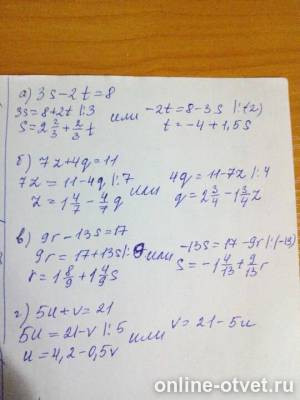 а) 3s-2t=8
3s=8+2t |:3 или -2t=8-3s |:(-2)
s=2 2/3+2/3 t t=-4+1,5s
б) 7z+4q=11
7z=11-4q |:7 или 4q=11-7z |:4
z=1 4/7-4/7 q q=2 3/4-1 3/4 z
в) 9r-13s=17
9r=17+13s |:9 или -13s=17-9r |:(-13)
r=1 8/9+1 4/9 s s=-1 4/13+9/13 r
г) 5u+v=21
5u=21-v |:5 или v=21-5u
u=4,2-0,5v
online-otvet.ru